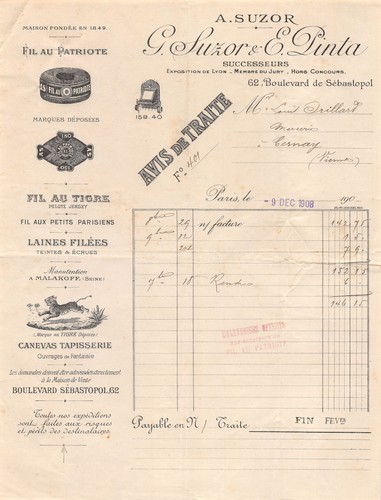 MAISON FONDÉE EN 1849
FIL AU PATRIOTE
FIL AU PATRIOTE
MARQUES DÉPOSÉES
FIL AU TIGRE
PELOTE JERSEY
FIL AUX PETITS PARISIENS
LAINES FILÉES
TEINTES & ÉCRUES
Manutention
A MALAKOFF (SEINE)
(Marque au TIGRE Déposée)
CANEVAS TAPISSERIE
Ouvrages de Fantaisie
Les demandes doivent être adressées directement
à la Maison de Vente
BOULEVARD SÉBASTOPOL, 62
Toutes nos expéditions
sont faites aux risques
et périls des destinataires.
A. SUZOR
G. Suzor & E. Pinta
SUCCESSEURS
EXPOSITION DE LYON - MEMBRE DU JURY, HORS CONCOURS.
62, Boulevard de Sébastopol
158.40
AVIS DE TRAITE
Fo 401
M. Louis
Mercier
à Cernay
(Vienne)
Paris, le 190
- 9 DEC 1908
29 n/ facture 142 75
12
152 15
15 6
146 15
Payable en N/ Traite FIN FEVer